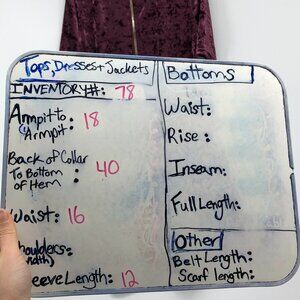 Tops, Dresses+ Jackets
INVENTORY#: 78
Armpit to
Armpit: 18
Back of Collar
To Bottom
of Hem : 40
Waist: 16
Shoulders:
Sleeve Length: 12
Bottoms
Waist:
Rise:
Inseam:
Full Length:
Other
Belt Length:
Scarf length: